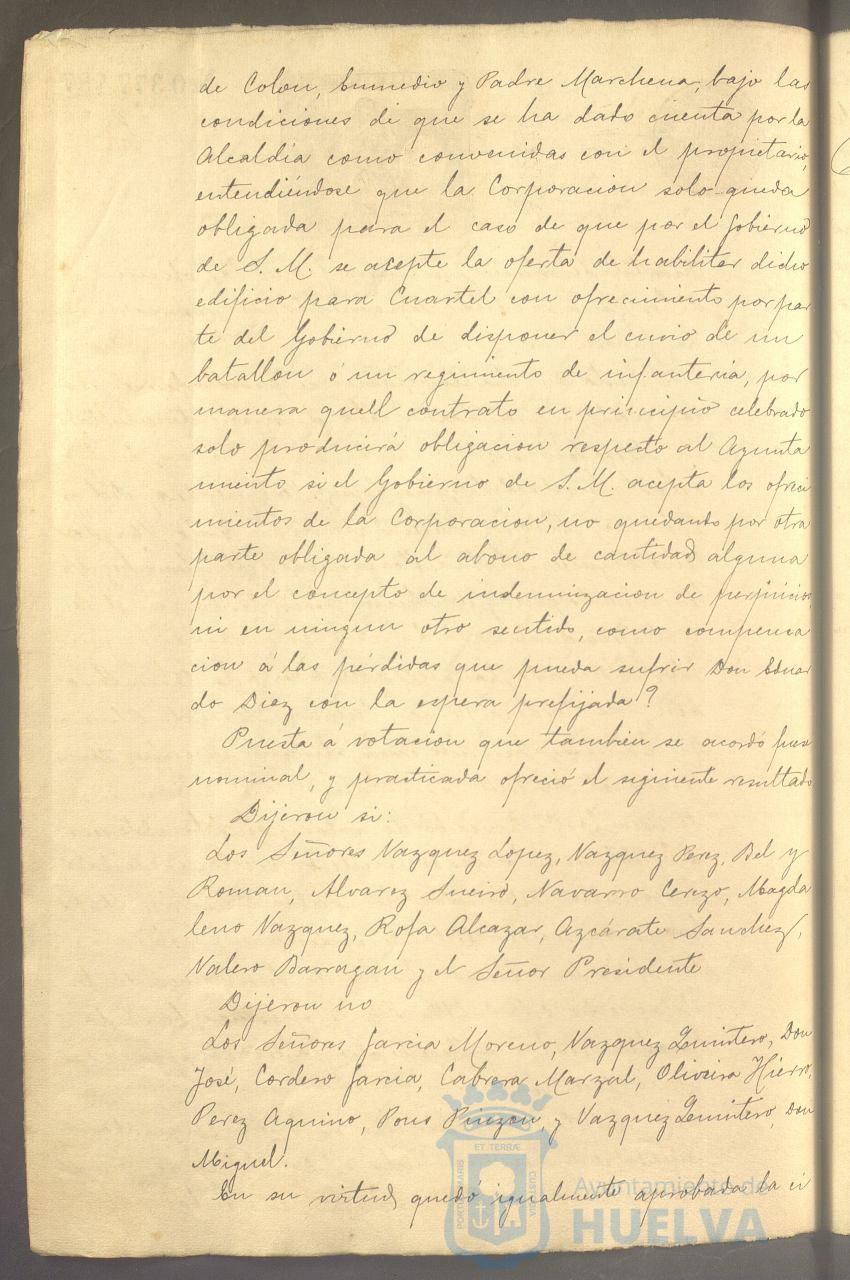 de Colon, Enmedio y Padre Marchena, bajo las
condiciones de que se ha dado cuenta por la
Alcaldía como convenidas con el propietario,
entendiéndose que la Corporacion solo queda
obligada para el caso de que por el Gobierno
de S. M. se acepte la oferta de habilitar dicho
edificio para Cuartel con ofrecimiento por par
te del Gobierno de disponer el envio de un
batallon ó un regimiento de infanteria, por
manera quell contrato en principio celebrado
solo producirá obligacion respecto al Ayunta
miento si el Gobierno de S. M. acepta los ofreci
mientos de la Corporacion, no quedando por otra
parte obligada al abono de cantidad alguna
por el concepto de indemnizacion de perjuicios
ni en ningun otro sentido, como compensa
cion á las pérdidas que pueda sufrir Don Eduar
do Diez con la espera prefijada?
Puesta á votacion que tambien se acordó fuese
nominal, y practicada ofreció el siguiente resultado
Dijeron si:
Los Señores Vazquez Lopez, Vazquez Perez, Bel y
Roman, Alvarez Sueiro, Navarro Cerezo, Magda
leno Vazquez, Rofa Alcazar, Azcárate Sanchez,
Valero Barragan y el Señor Presidente
Dijeron no
Los Señores Garcia Moreno, Vazquez Quintero, Don
José, Cordero Garcia, Cabrera Marzal, Oliveira Hierro,
Perez Aquino, Pons Pinzon, y Vazquez Quintero, Don
Miguel.
En su virtud quedó igualmente aprobada la ci
ET TERRÆ
PORTUS MARIS
CUSTODIA
Ayuntamiento de
HUELVA